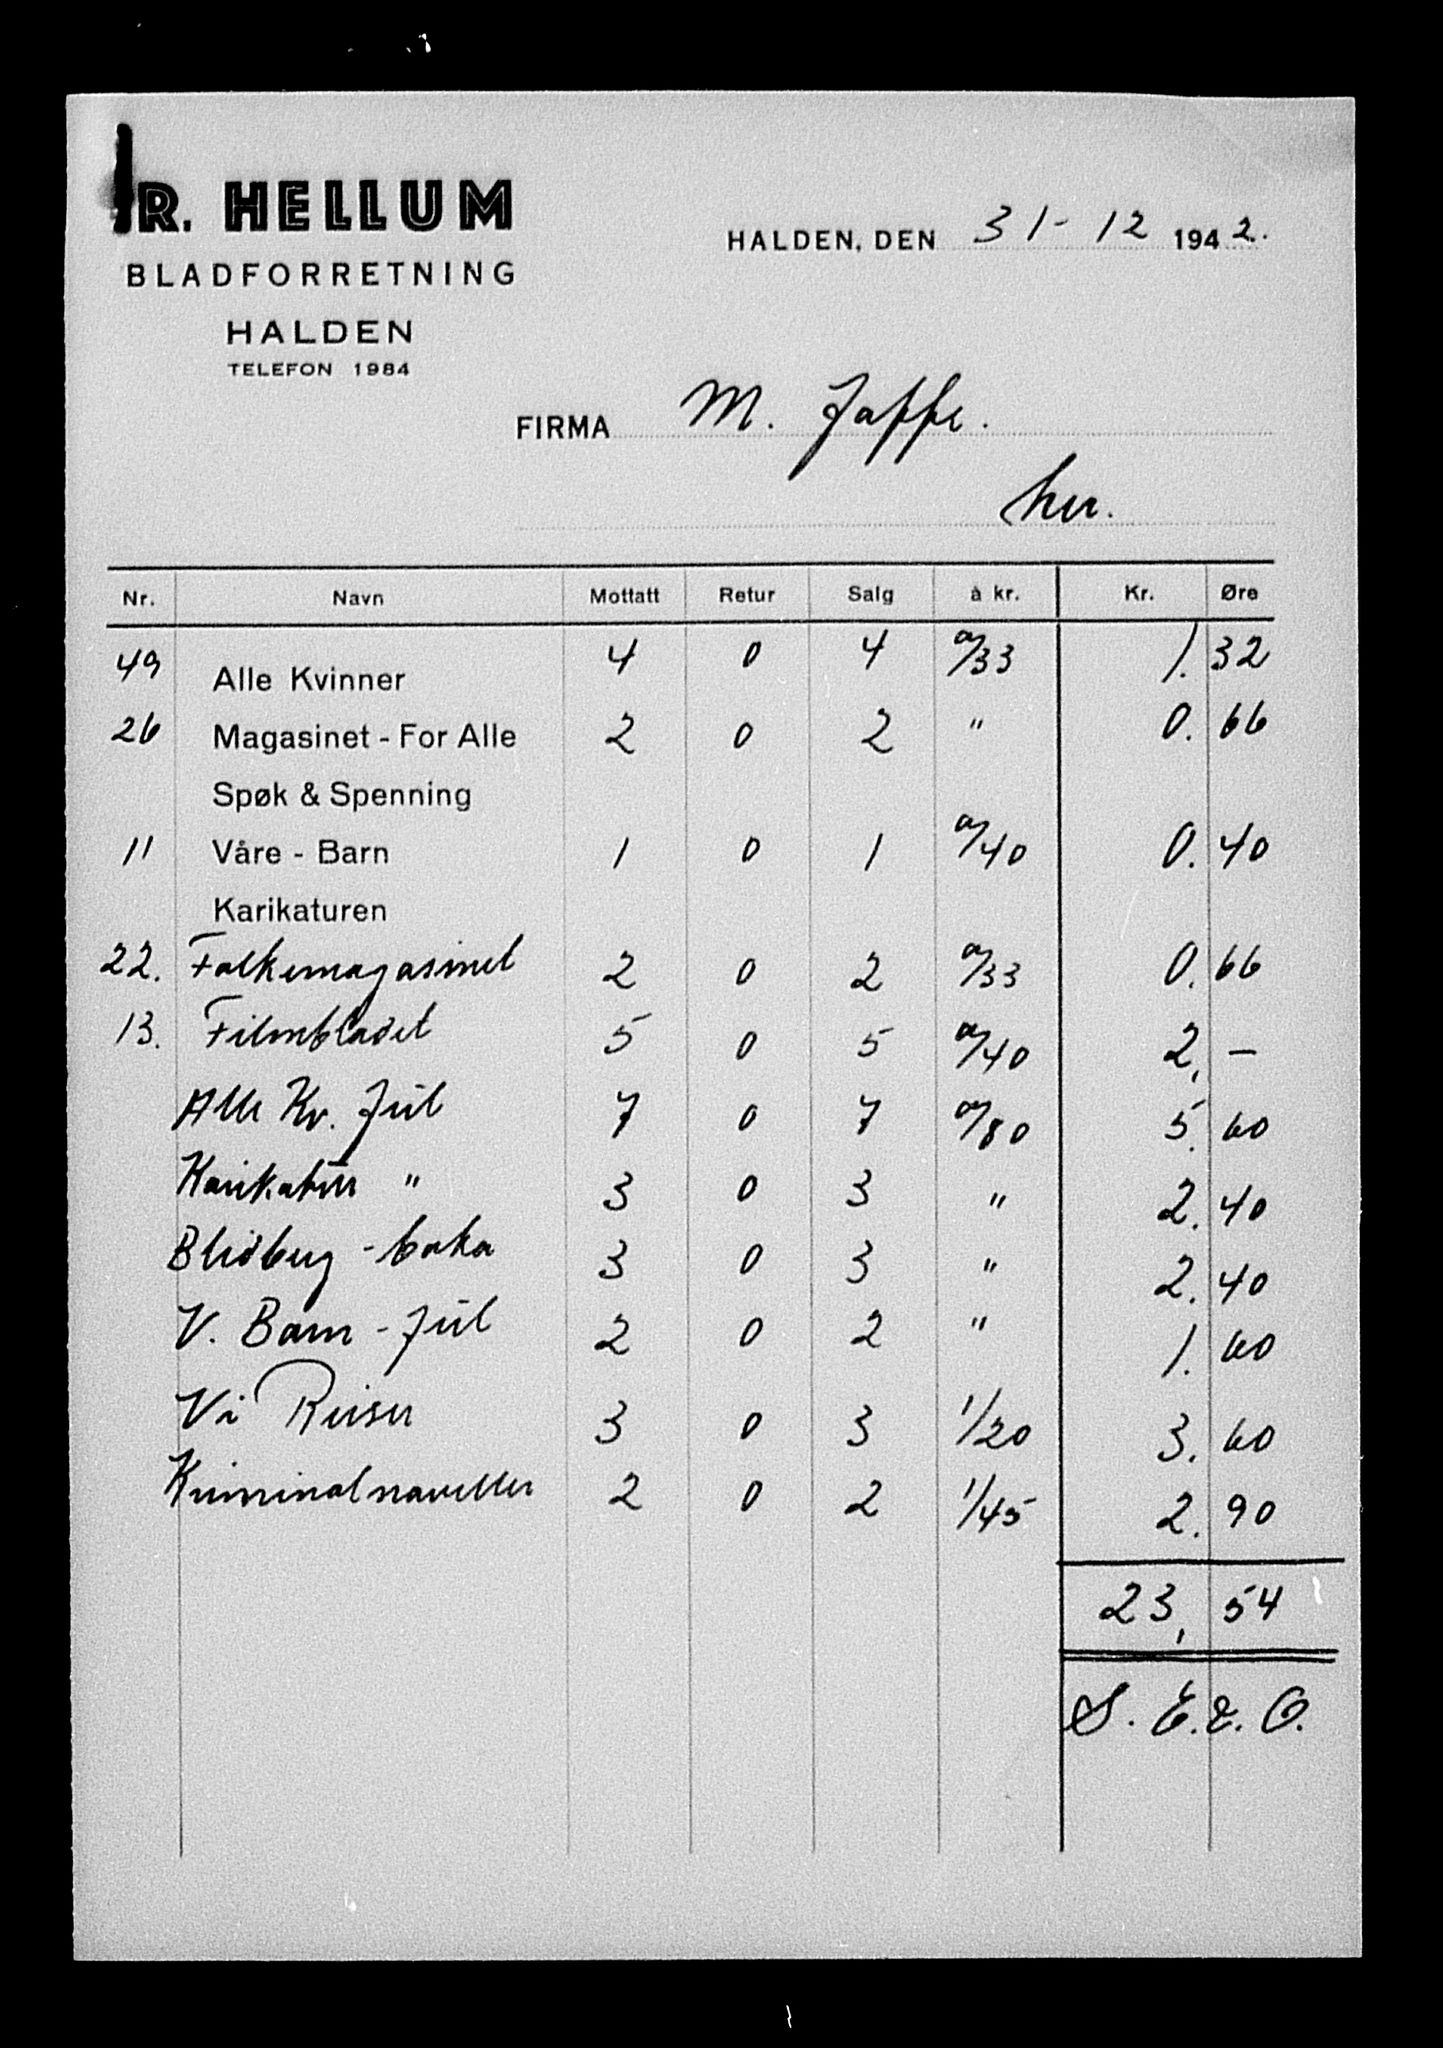 R. HELLUM
BLADFORRETNING
HALDEN
TELEFON 1984
HALDEN, DEN 31-12 1942.
FIRMA M. Jaffe.
her.
Nr. Navn Mottatt Retur Salg à kr. Kr. Øre
49 Alle Kvinner 4 0 4 0/33 1. 32
26 Magasinet - For Alle 2 0 2 " 0. 66
Spøk & Spenning
11 Våre - Barn 1 0 1 0/40 0. 40
Karikaturen
22. Folkemagasinet 2 0 2 0/33 0. 66
13. Filmbladet 5 0 5 0/40 2, -
Alle Kv. Jul 7 0 7 0/80 5. 60
Karikaturen " 3 0 3 " 2. 40
Blidberg - boka 3 0 3 " 2. 40
V. Barn - Jul 2 0 2 " 1. 60
Vi Reiser 3 0 3 1/20 3. 60
Kriminalnoveller 2 0 2 1/45 2. 90
23, 54
S. E. & O.